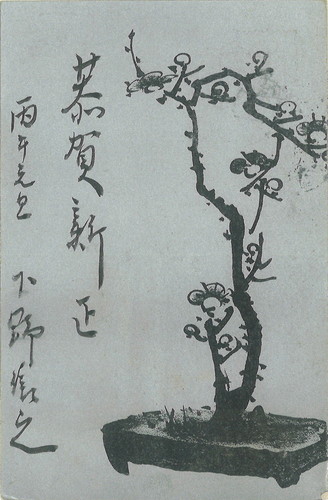 恭賀新正
丙午元旦
下野 之